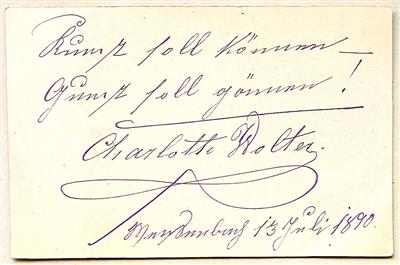 Kunst soll können –
Gunst soll gönnen!
Charlotte Wolter.
13 Juli 1890.